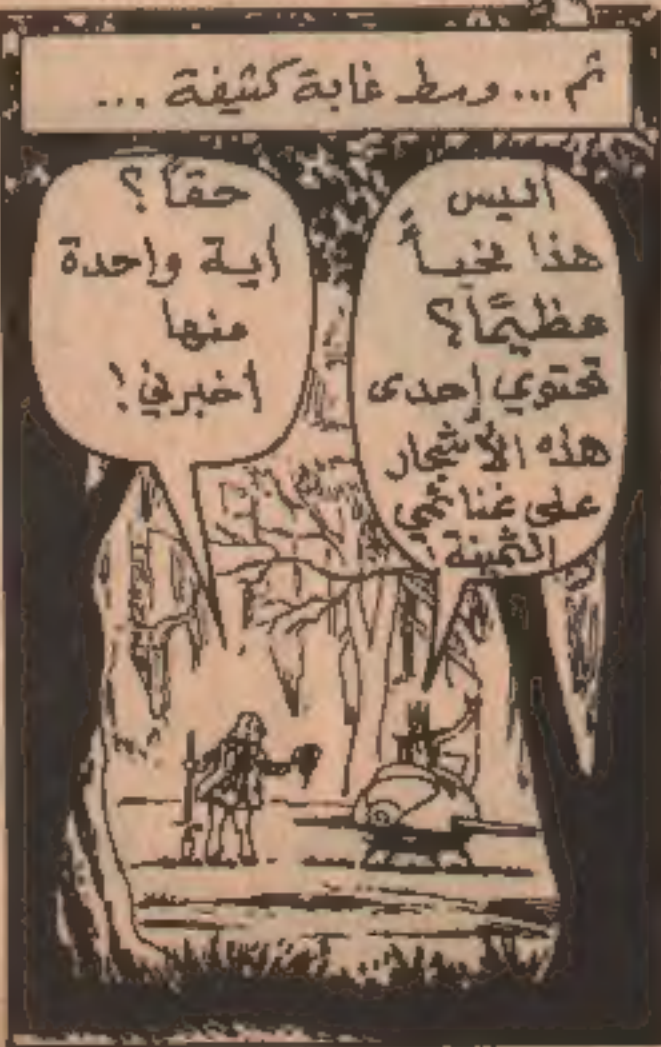 ثم... وسط غابة كثيفة...
اليس
هذا مخبأً
عظيمًا؟
تحتوي إحدى
هذه الأشجار
على غنائمي
الثمينة
حقاً؟
أية واحدة
منها
اخبرني!